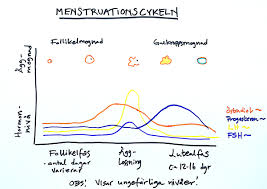 MENSTRUATIONSCYKELN
Follikelmognad
Gulkroppsmognad
Ägg-
mognad
Hormon-
nivå
Östradiol ~
Progesteron ~
LH ~
FSH ~
Follikelfas
- antal dagar
varierar
Ägg-
lossning
Lutealfas
c-12-16 dgr
OBS! Visar ungefärliga nivåer!